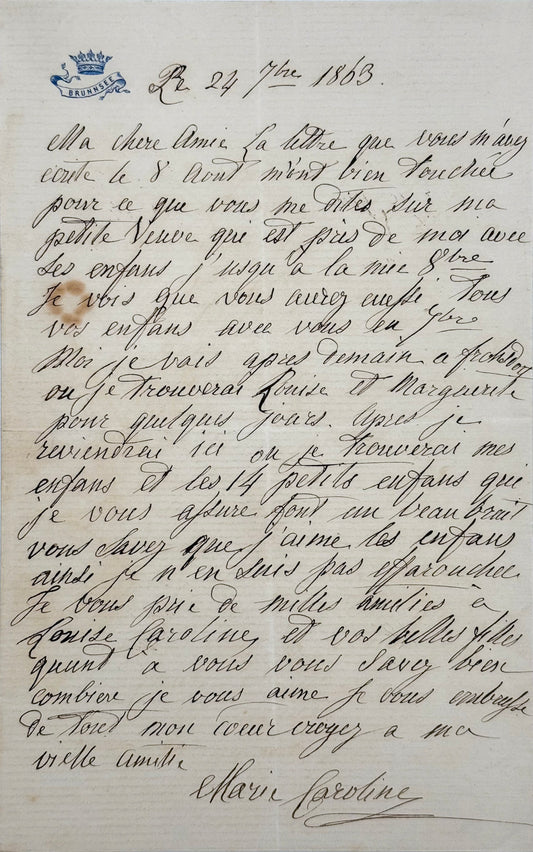 BRUNNSEE
Br 24 7bre 1863.
Ma chere Amie La lettre que vous m'avez
ecrite le 8 Aout m'ont bien touchée
pour ce que vous me dites sur ma
petite Veuve qui est près de moi avec
ses enfans j'usqu'à la mie 8bre
Je vois que vous aurez aussi tous
vos enfans avec vous en 7bre
Moi je vais apres demain a Frohsdorf
ou je trouverai Louise et Marguerite
pour quelques jours. Apres je
reviendrai ici ou je trouverai mes
enfans et les 14 petits enfans qui
je vous assure font un beau bruit
vous savez que j'aime les enfans
ainsi je n'en suis pas effarouchée
Je vous prie de milles amitiés a
Louise Caroline et vos belles filles
quant à vous vous savez bien
combiere je vous aime Je vous embrasse
de tout mon cœur croyez a ma
vielle amitié
Marie Caroline